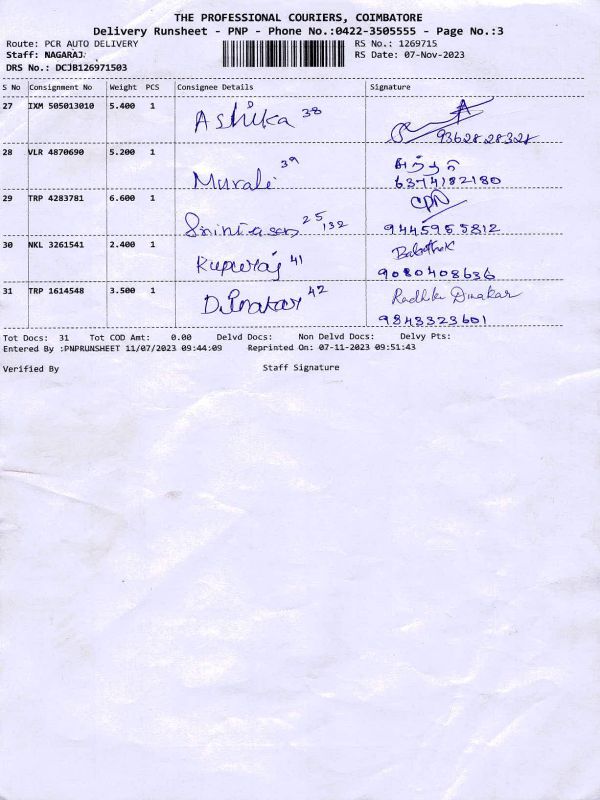 THE PROFESSIONAL COURIERS, COIMBATORE
Delivery Runsheet - PNP - Phone No.:0422-3505555 - Page No.:3
Route: PCR AUTO DELIVERY RS No.: 1269715
Staff: NAGARAJ. RS Date: 07-Nov-2023
DRS No.: DCJB126971503
S No Consignment No Weight PCS Consignee Details Signature
27 IXM 505013010 5.400 1 Ashika 38
9362828328
28 VLR 4870690 5.200 1 Murali 39
6374182180
29 TRP 4283781 6.600 1 Srinivasan 25,132
9445955812
30 NKL 3261541 2.400 1 41
9080408636
31 TRP 1614548 3.500 1 D.Dinakar 42 Radhika Dinakar
9843323601
Tot Docs: 31 Tot COD Amt: 0.00 Delvd Docs: Non Delvd Docs: Delvy Pts:
Entered By :PNPRUNSHEET 11/07/2023 09:44:09 Reprinted On: 07-11-2023 09:51:43
Verified By Staff Signature